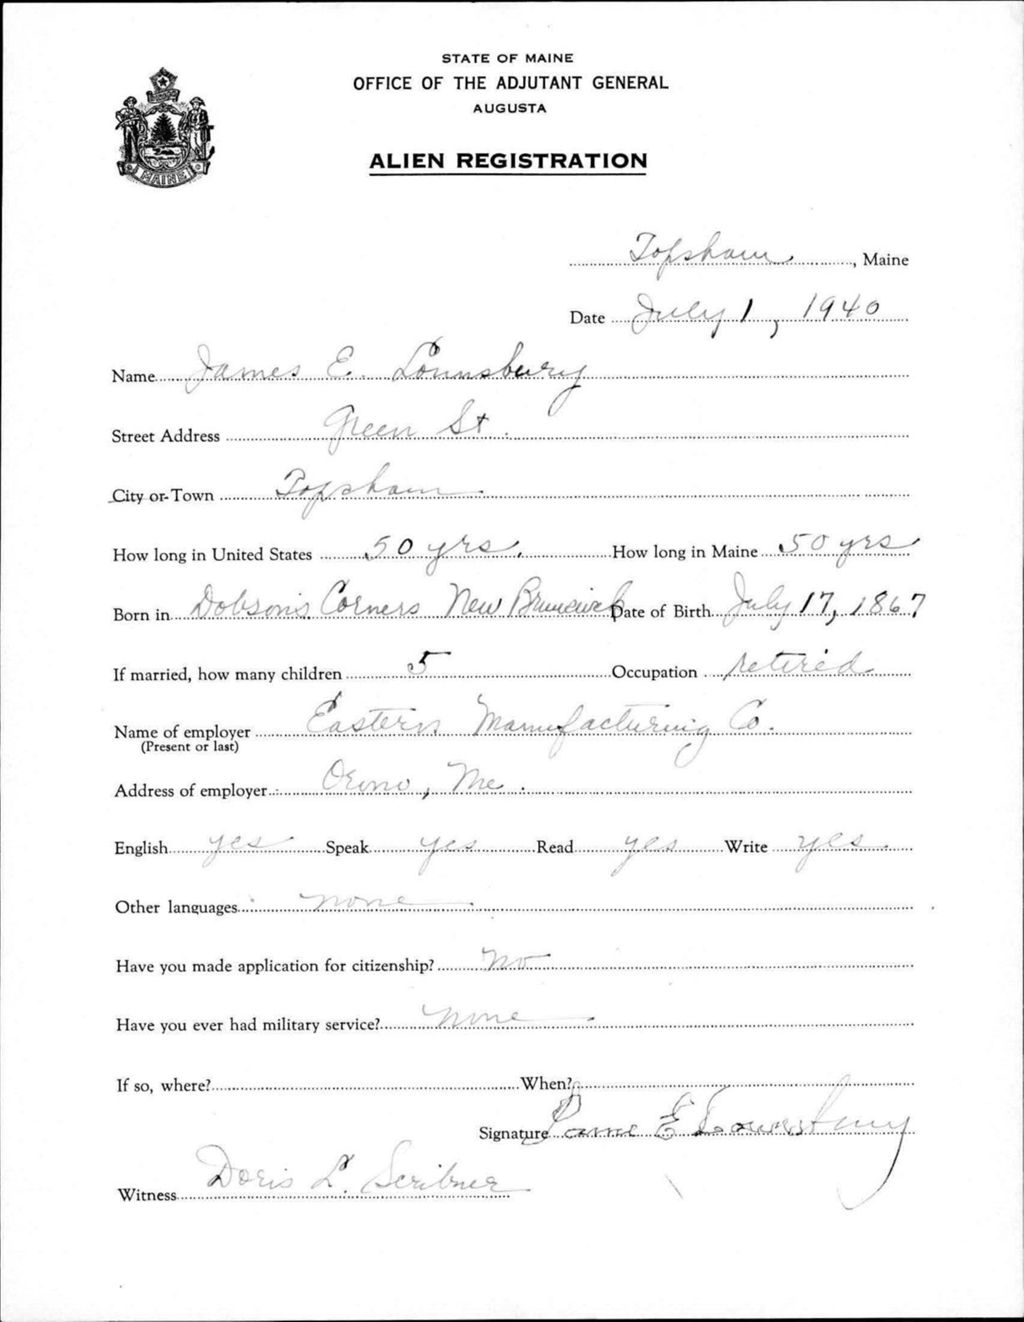 STATE OF MAINE
OFFICE OF THE ADJUTANT GENERAL
AUGUSTA
ALIEN REGISTRATION
MAINE
Topsham, Maine
Date July 1, 1940
Name James E. Lounsbury
Street Address Green St.
City or Town Topsham
How long in United States 50 yrs. How long in Maine 50 yrs
Born in Dobson's Corners New Brunswick Date of Birth July 17, 1867
If married, how many children 5 Occupation retired
Name of employer Eastern Manufacturing Co.
(Present or last)
Address of employer Orono, Me.
English yes Speak yes Read yes Write yes
Other languages none
Have you made application for citizenship? no
Have you ever had military service? none
If so, where? When?
Signature James E Lounsbury
Witness Doris L. Scribner